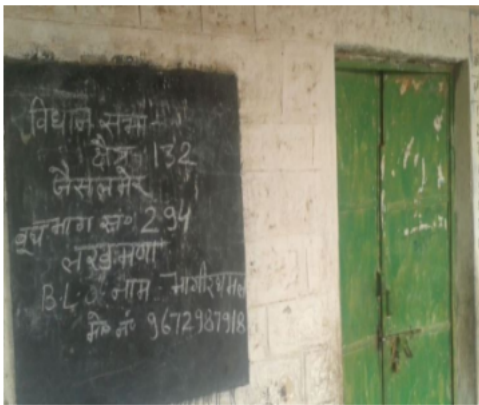 विधान सभा
क्षेत्र 132
जैसलमेर
बूथ भाग स॰ 294
लखमणा
B.L.O नाम - भागीरथमल
मो॰ नं॰ 9672987918